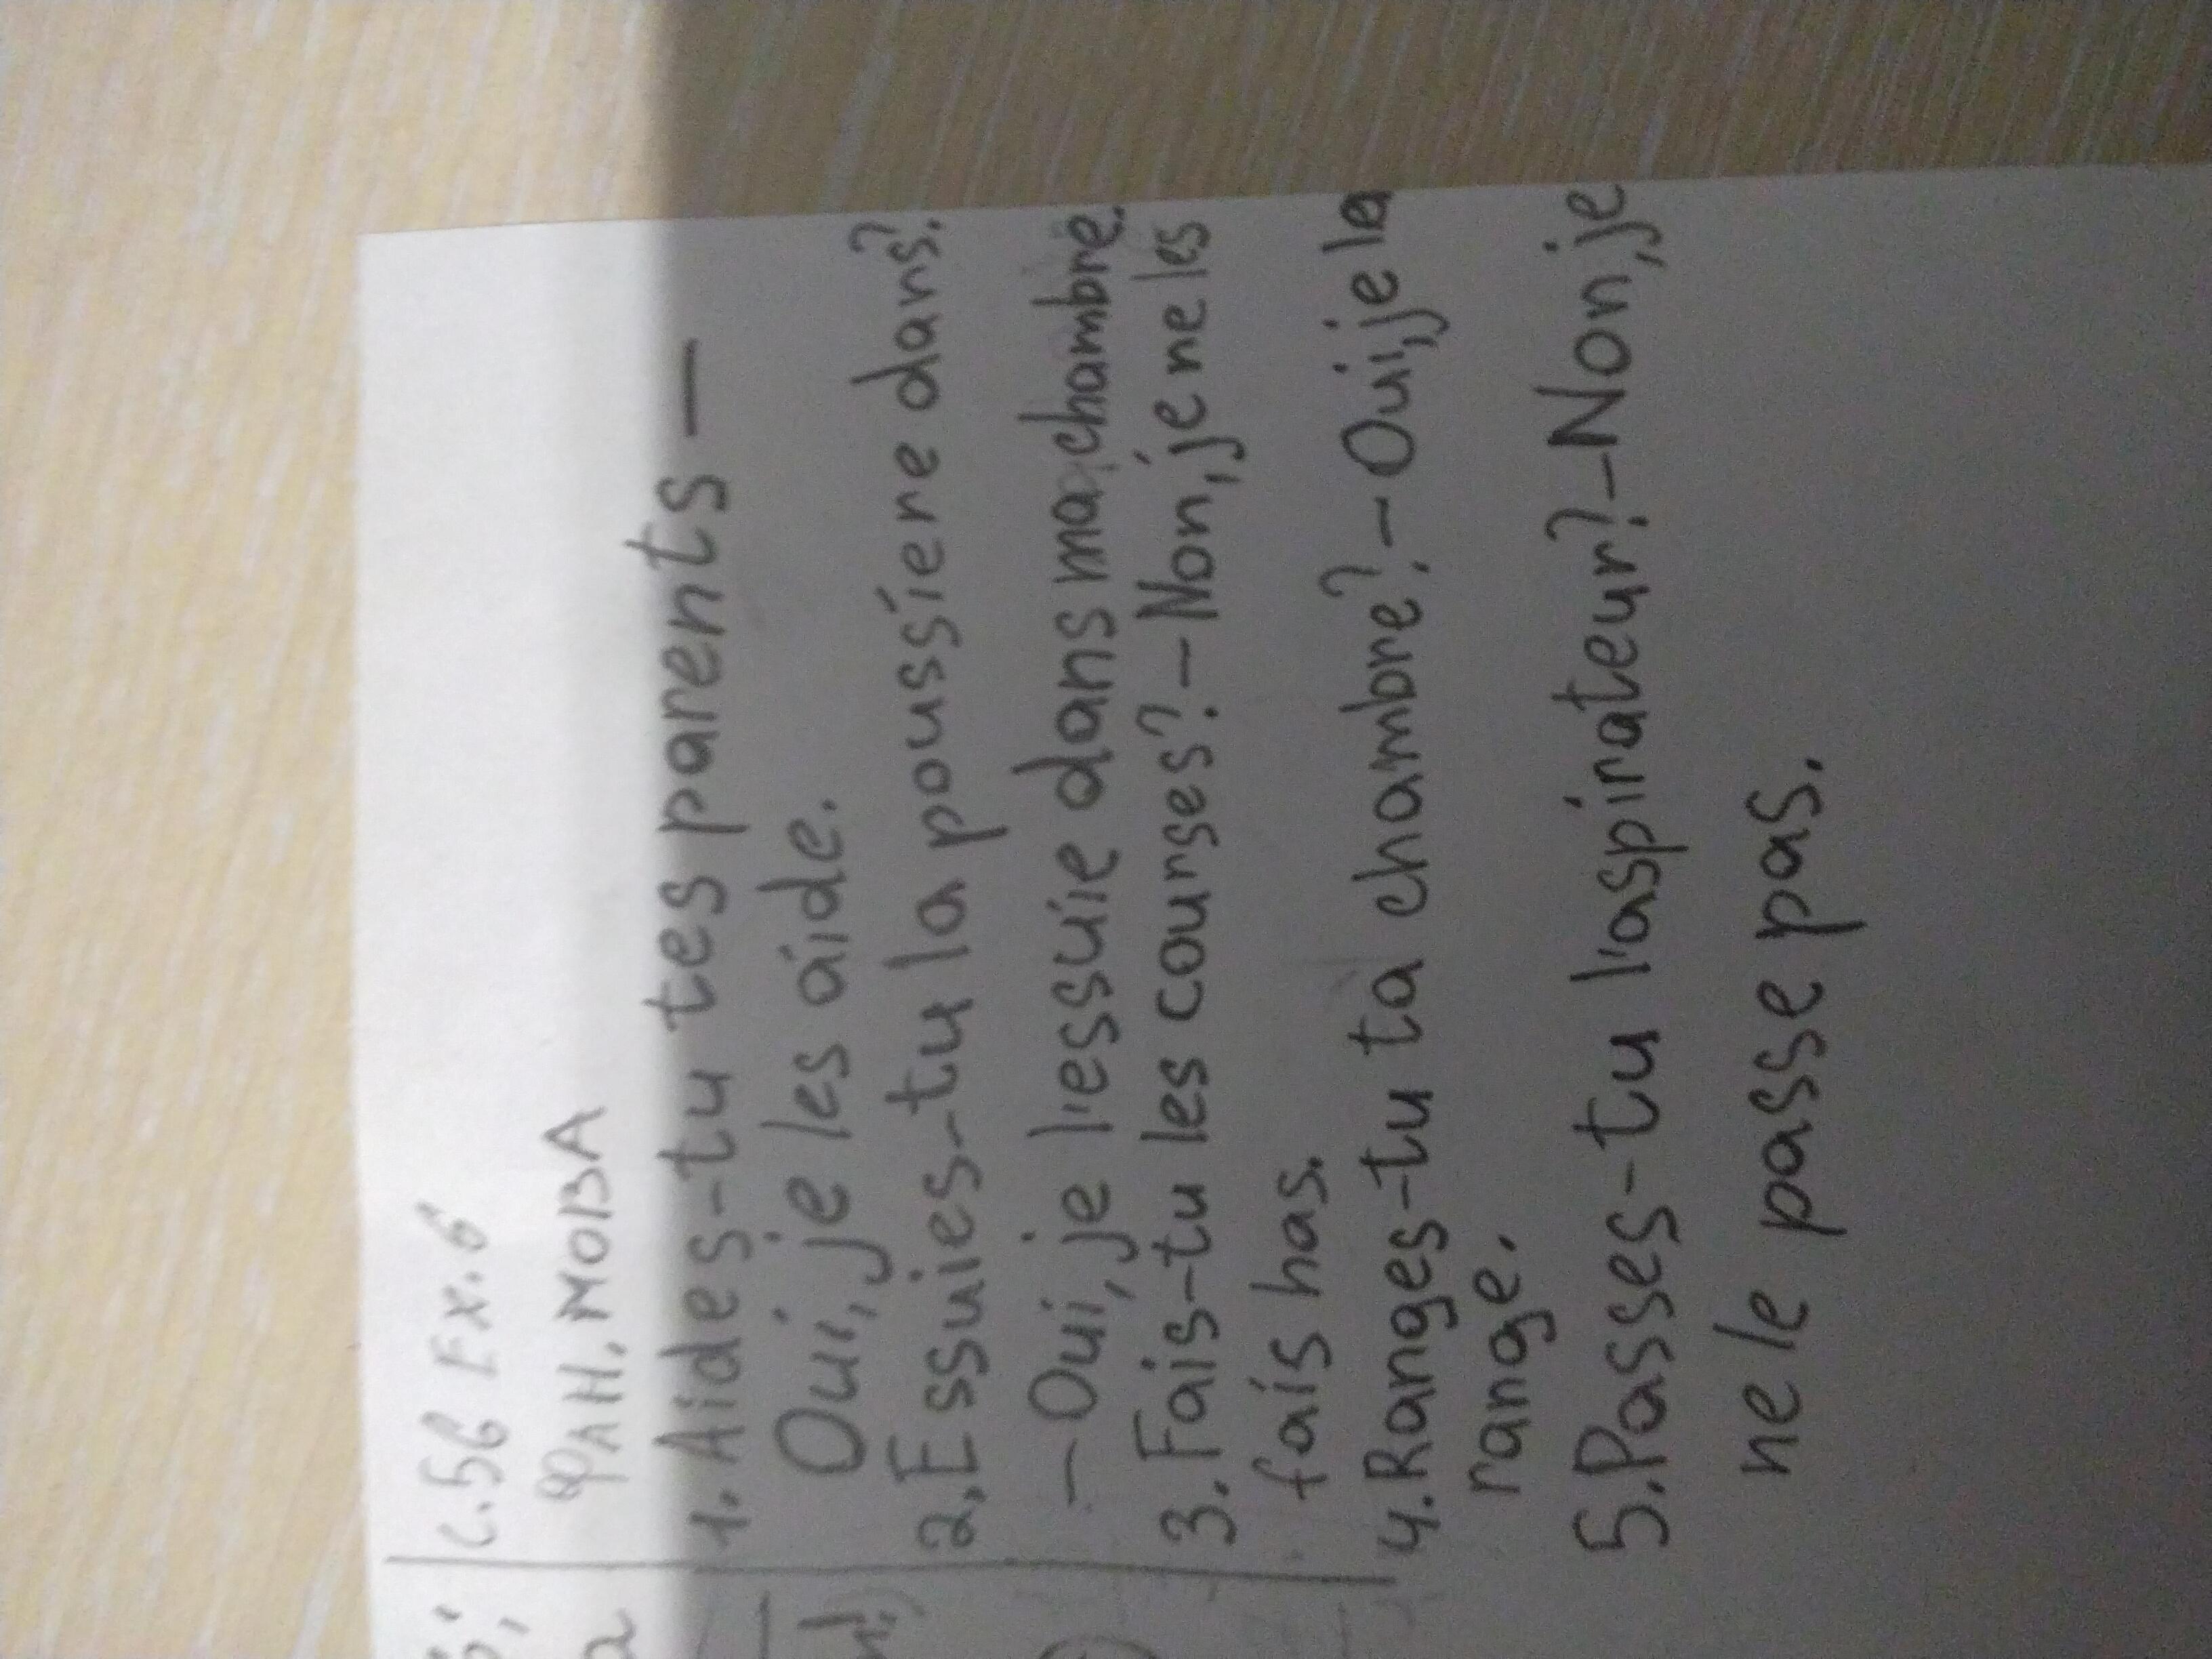 с.56 Ex.6
фран. мова
1. Aides-tu tes parents —
Oui, je les aide.
2. Essuies-tu la poussiere dans?
— Oui, je l'essuie dans ma chambre.
3. Fais-tu les courses? — Non, je ne les
fais has.
4. Ranges-tu ta chambre? — Oui, je la
range.
5. Passes-tu l'aspirateur? — Non, je
ne le passe pas.